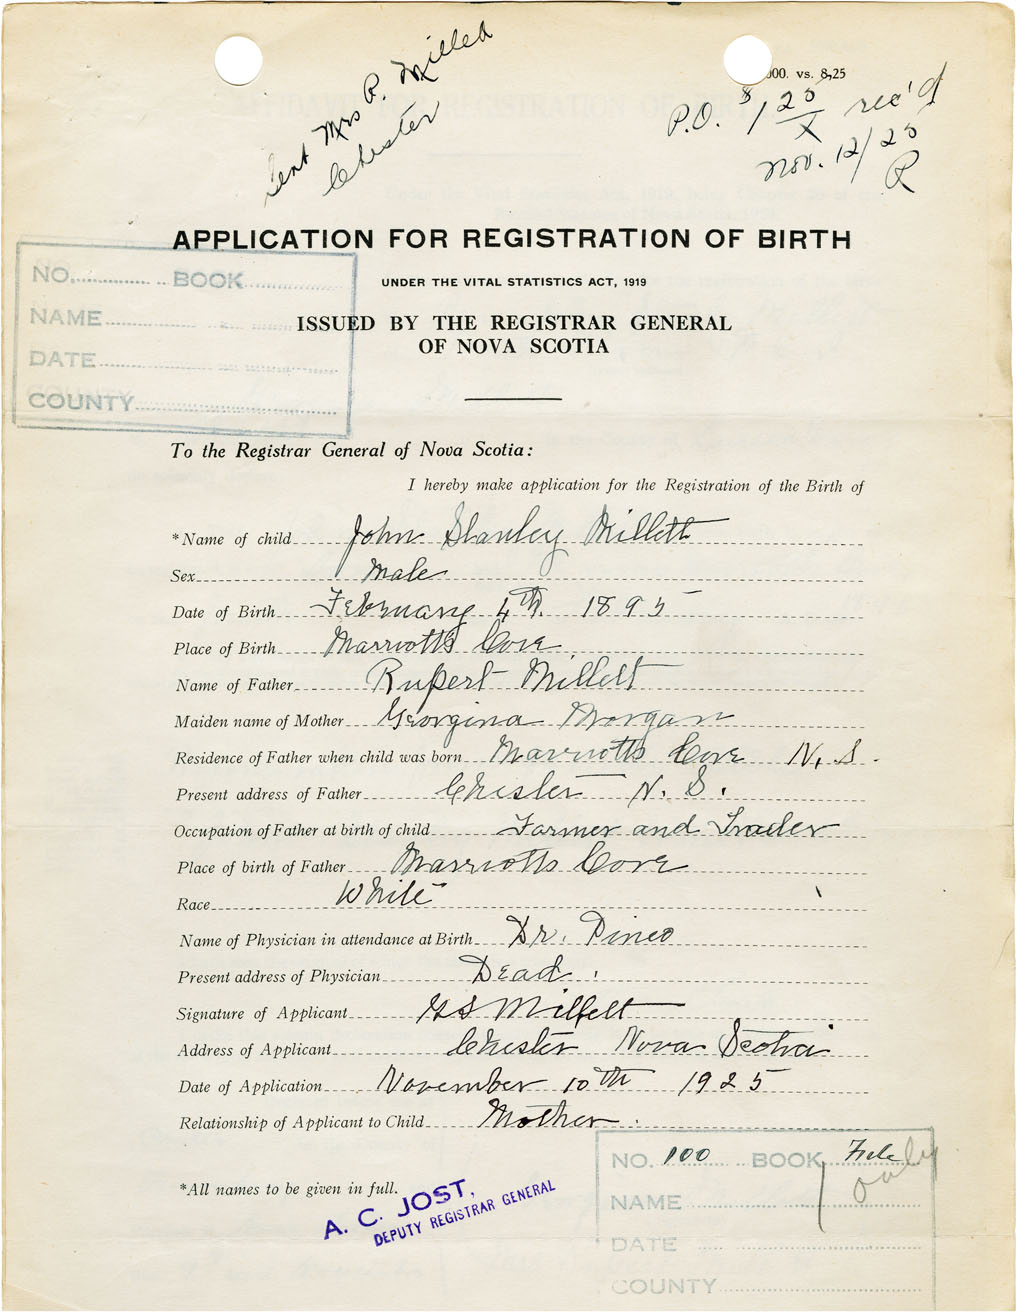 Sent Mrs R. Millett
Chester
000. vs. 8,25
P.O. $1 25/X rec'd
Nov. 12/25
R
APPLICATION FOR REGISTRATION OF BIRTH
UNDER THE VITAL STATISTICS ACT, 1919
ISSUED BY THE REGISTRAR GENERAL
OF NOVA SCOTIA
NO. BOOK
NAME
DATE
COUNTY
To the Registrar General of Nova Scotia:
I hereby make application for the Registration of the Birth of
*Name of child John Stanley Millett
Sex Male
Date of Birth February 4th. 1895
Place of Birth Marriotts Cove
Name of Father Rupert Millett
Maiden name of Mother Georgina Morgan
Residence of Father when child was born Marriotts Cove N. S.
Present address of Father Chester N. S.
Occupation of Father at birth of child Farmer and Trader
Place of birth of Father Marriotts Cove
Race White
Name of Physician in attendance at Birth Dr. Pineo
Present address of Physician Dead.
Signature of Applicant G S Millett
Address of Applicant Chester Nova Scotia
Date of Application November 10th 1925
Relationship of Applicant to Child Mother.
*All names to be given in full.
A. C. JOST,
DEPUTY REGISTRAR GENERAL
NO. 100 BOOK File
only
NAME
DATE
COUNTY